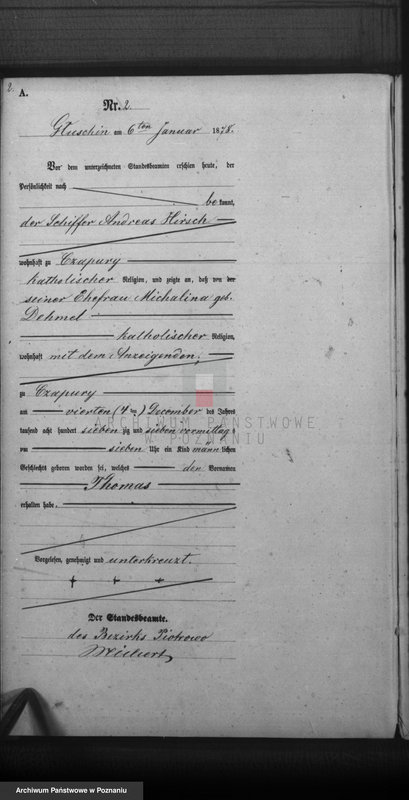 2.
A.
Nr. 2.
Gluschin am 6ten Januar 1878.
Vor dem unterzeichneten Standesbeamten erschien heute, der
Persönlichkeit nach
bekannt,
der Schiffer Andreas Hirsch
wohnhaft zu Czapury
katholischer Religion, und zeigte an, daß von der
seiner Ehefrau Michalina geb.
Dehmel
katholischer Religion,
wohnhaft mit dem Anzeigenden,
zu Czapury
am vierten (4ten) December des Jahres
tausend acht hundert siebenzig und sieben vormittags
um sieben Uhr ein Kind männlichen
Geschlechts geboren worden sei, welches den Vornamen
Thomas
erhalten habe.
Vorgelesen, genehmigt und unterkreuzt.
+ + +
Der Standesbeamte.
des Bezirks Piotrowo
ARCHIWUM PAŃSTWOWE
W POZNANIU
Archiwum Państwowe w Poznaniu